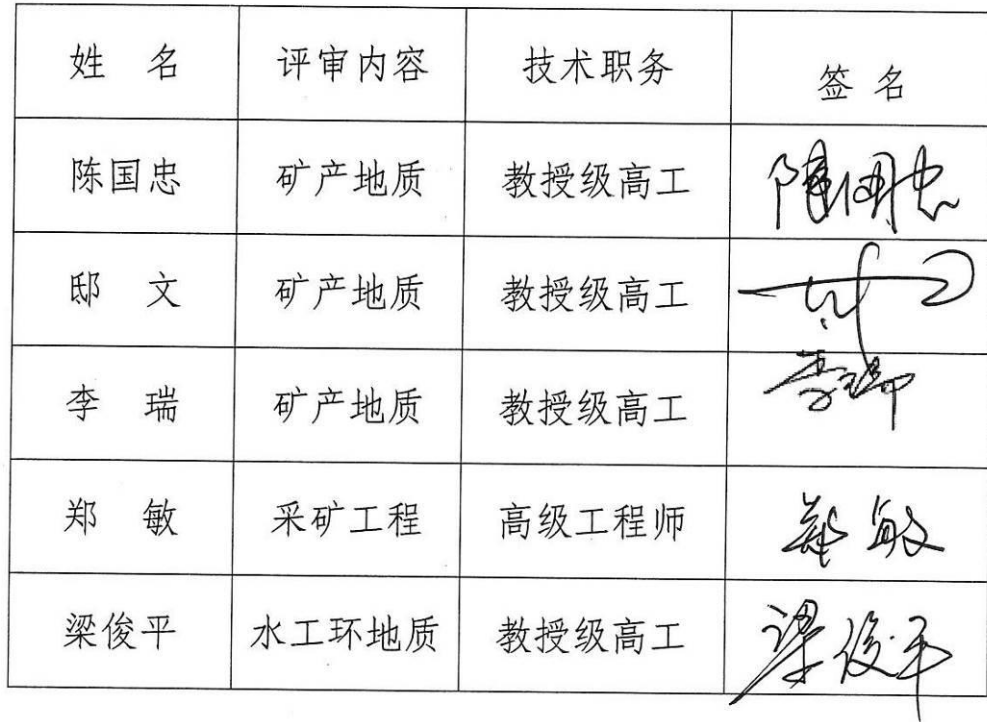 姓 名 评审内容 技术职务 签 名
陈国忠 矿产地质 教授级高工 陈国忠
邸 文 矿产地质 教授级高工
李 瑞 矿产地质 教授级高工 李瑞
郑 敏 采矿工程 高级工程师 郑敏
梁俊平 水工环地质 教授级高工 梁俊平